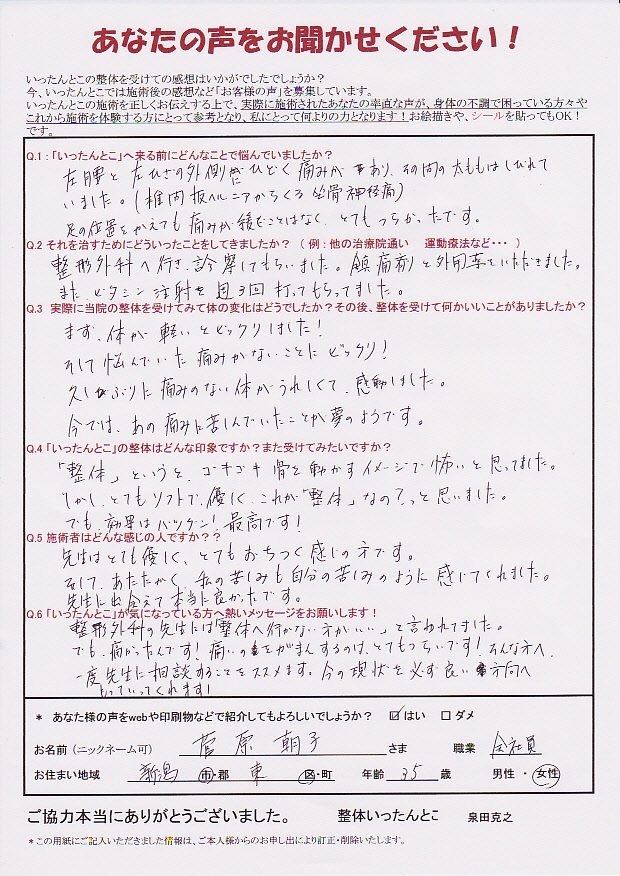 あなたの声をお聞かせください！
いったんとこの整体を受けての感想はいかがでしたでしょうか？
今、いったんとこでは施術後の感想など「お客様の声」を募集しています。
いったんとこの施術を正しくお伝えする上で、実際に施術されたあなたの率直な声が、身体の不調で困っている方々や
これから施術を体験する方にとって参考となり、私にとって何よりの力となります！お絵描きや、シールを貼ってもOK！
です。
Q.1：「いったんとこ」へ来る前にどんなことで悩んでいましたか？
左腰と左ひざの外側がひどく痛みがあり、その間の太ももはしびれて
いました。（椎間板ヘルニアからくる坐骨神経痛）
足の位置をかえても痛みが緩むことはなく、とてもつらかったです。
Q.2 それを治すためにどういったことをしてきましたか？（例：他の治療院通い 運動療法など・・・ ）
整形外科へ行き、診察してもらいました。鎮痛剤と外用薬をいただきました。
また、ビタミン注射を週3回打ってもらってました。
Q.3 実際に当院の整体を受けてみて体の変化はどうでしたか？その後、整体を受けて何かいいことがありましたか？
まず、体が軽いとビックリしました！
そして悩んでいた痛みがないことにビックリ！
久しぶりに痛みのない体がうれしくて、感動しました。
今では、あの痛みに苦しんでいたことが夢のようです。
Q.4「いったんとこ」の整体はどんな印象ですか？また受けてみたいですか？
「整体」というと、ゴキゴキ骨を動かすイメージで怖いと思ってました。
しかし、とてもソフトで、優しく、これが「整体」なの？っと思いました。
でも、効果はバツグン！最高です！
Q.5 施術者はどんな感じの人ですか？？
先生はとても優しく、とてもおちつく感じの方です。
そして、あたたかく、私の苦しみも自分の苦しみのように感じてくれました。
先生に出会えて本当に良かったです。
Q.6「いったんとこ」が気になっている方へ熱いメッセージをお願いします！
整形外科の先生には「整体へ行かない方がいい」と言われてました。
でも、痛かったんです！痛いのをがまんするのは、とてもつらいです！そんな方へ、
一度先生に相談することをススメます。今の現状を必ず良い方向へ
もっていってくれます！
＊ あなた様の声をwebや印刷物などで紹介してもよろしいでしょうか？ ☑はい □ダメ
お名前（ニックネーム可） 菅原 朝子 さま 職業 会社員
お住まい地域 新潟 市・郡 東 区・町 年齢 35 歳 男性・女性
ご協力本当にありがとうございました。 整体いったんとこ 泉田克之
＊この用紙にご記入いただきました情報は、ご本人様からのお申し出により訂正・削除いたします。